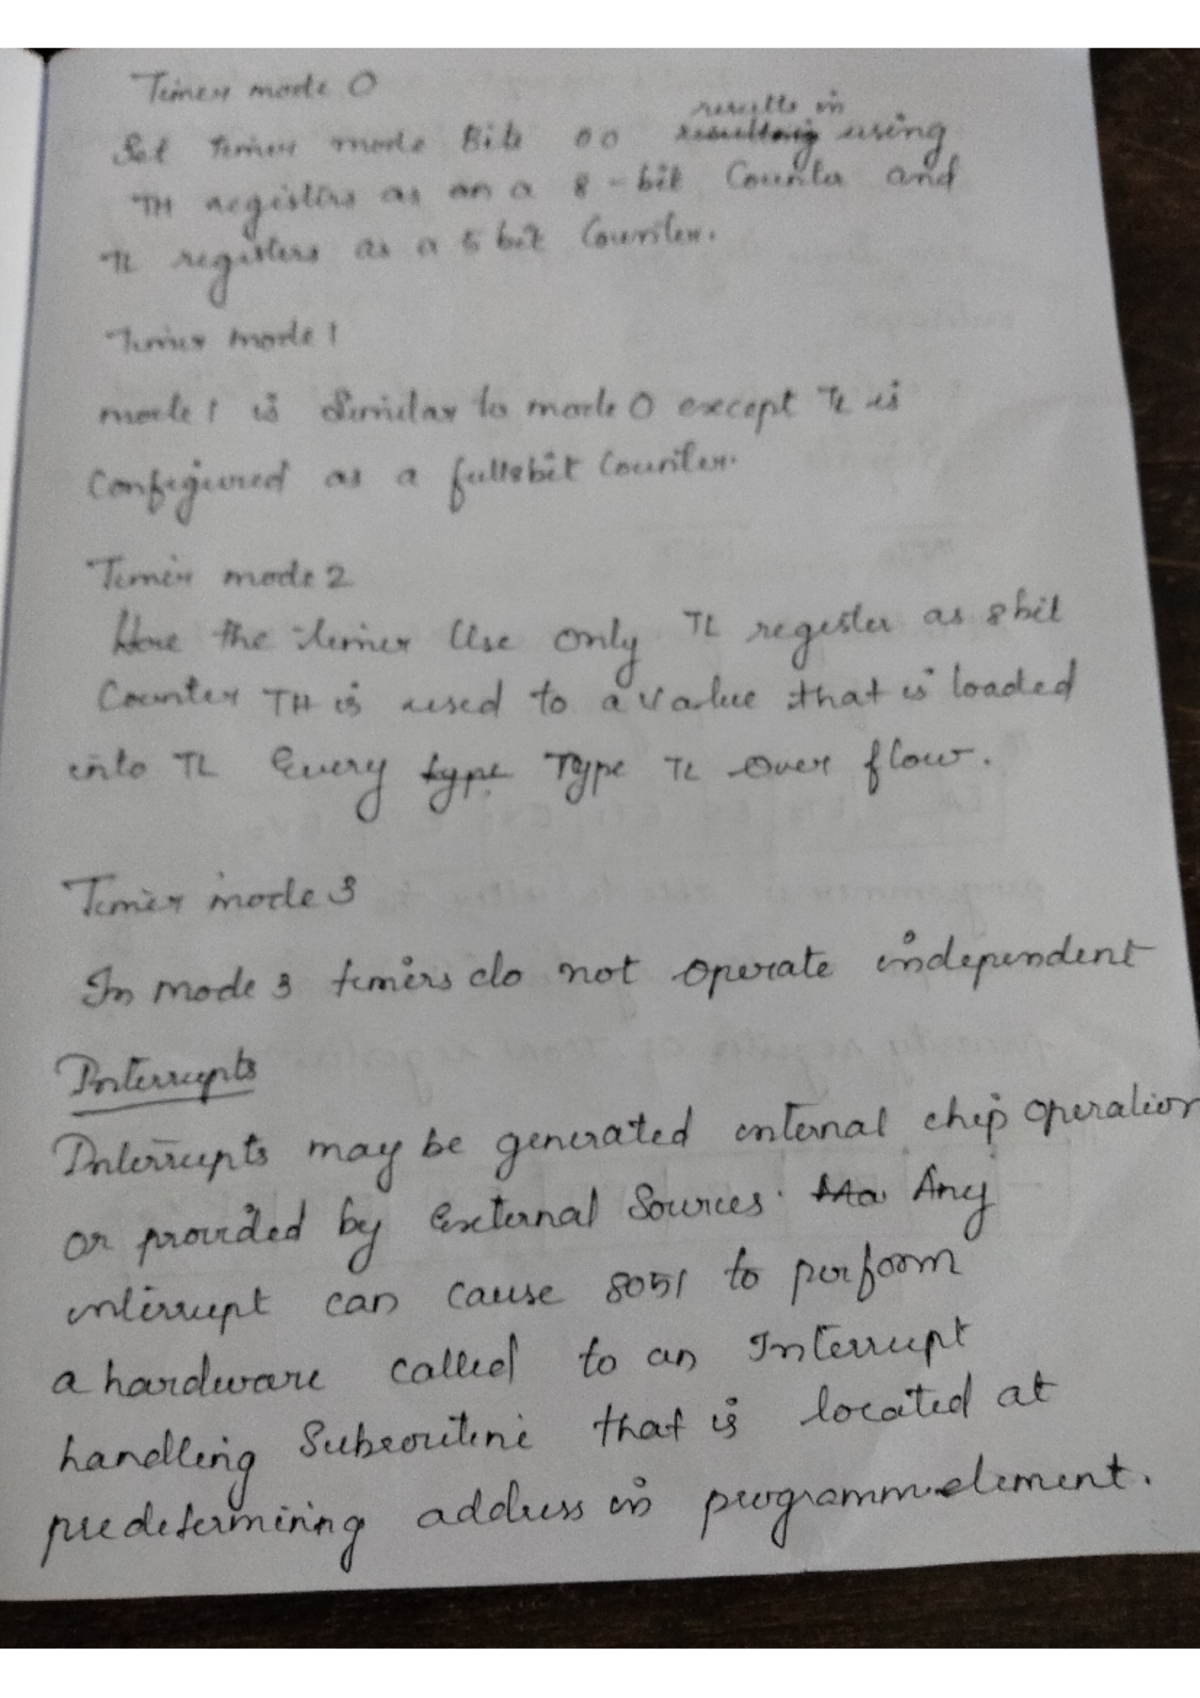 Timer mode 0
results in
Set timer mode Bits 00 resulting using
TH registers as an a 8-bit Counter and
TL registers as a 5 bit Counter.
Timer mode 1
mode 1 is Similar to mode 0 except TL is
Configured as a full 8bit Counter.
Timer mode 2
Here the timer Use only TL register as 8bit
Counter TH is used to a value that is loaded
into TL Every type Type TL over flow.
Timer mode 3
In mode 3 timers do not operate independent
Interrupts
Interrupts may be generated internal chip operation
or provided by External Sources. Ma Any
interrupt can cause 8051 to perform
a hardware called to an Interrupt
handling Subroutine that is located at
predetermining address in programmelement.